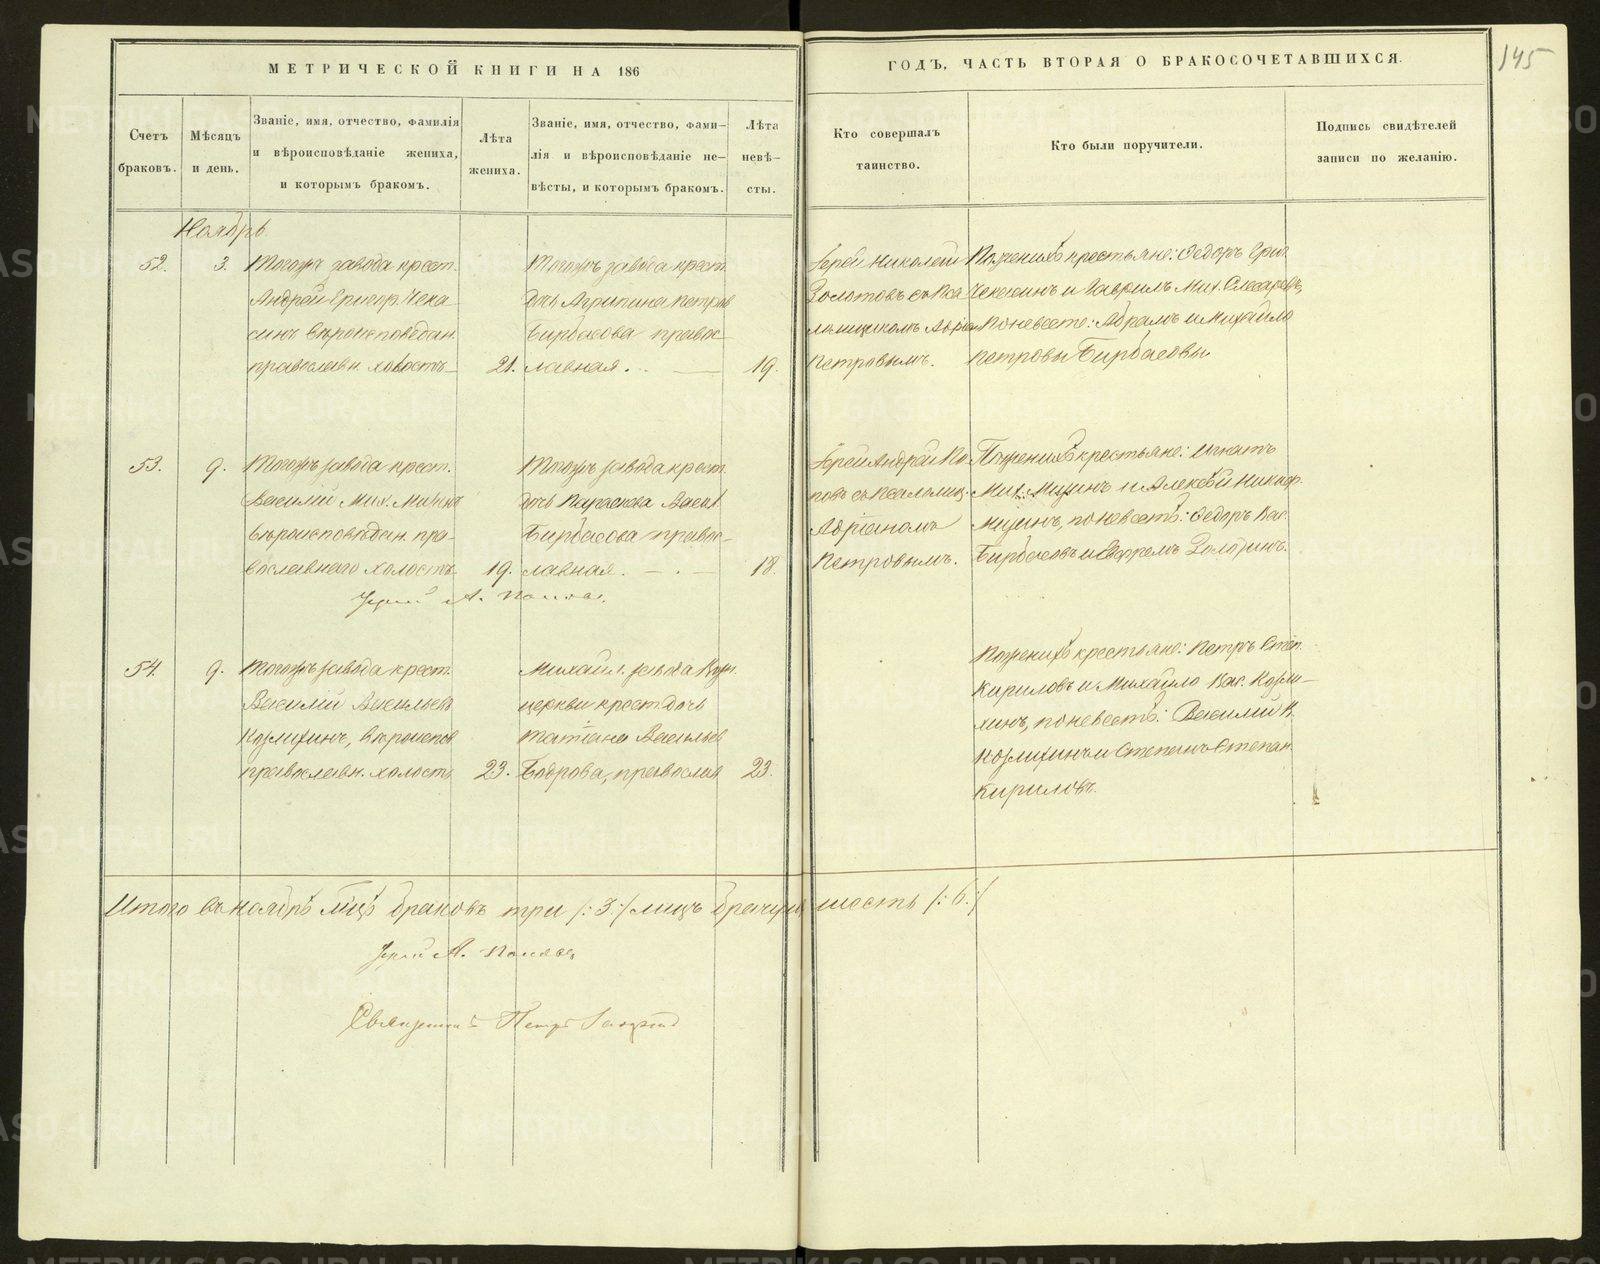 МЕТРИЧЕСКОЙ КНИГИ НА 186
ГОДЪ, ЧАСТЬ ВТОРАЯ О БРАКОСОЧЕТАВШИХСЯ.
145
Счетъ
браковъ.
Мѣсяцъ
и день.
Званіе, имя, отчество, фамилія
и вѣроисповѣданіе жениха,
и которымъ бракомъ.
Лѣта
жениха.
Званіе, имя, отчество, фами-
лія и вѣроисповѣданіе не-
вѣсты, и которымъ бракомъ.
Лѣта
невѣ-
сты.
Кто совершалъ
таинство.
Кто были поручители.
Подпись свидѣтелей
записи по желанію.
Ноябрь
52.
3.
Тогожъ завода крест.
Андрей Григор. Чека
синъ вѣроисповѣдан.
православн. холостъ
21.
Тогожъ завода крест.
дочь Агрипина Петров
Бирбасова правос-
лавная.
19.
Іерей Николай
Золотовъ съ Пса
ломщикомъ Адріан
Петровымъ.
По женихѣ крестьяне: Ѳедоръ Григ.
Чекасинъ и Гаврилъ Мих. Слесаревъ,
по невестѣ: Абрамъ и Михайло
Петровы Бирбасовы
53.
9.
Тогожъ завода крест.
Василій Мих.
вѣроисповѣдан. пра-
вославнаго холостъ
19.
Тогожъ завода крест.
дочь Параскева Васил.
Бирбасова правос-
лавная.
18.
Іерей Андрей По
повъ съ Псаломщ.
Адріаномъ
Петровымъ.
По женихѣ крестьяне: Игнатъ
Мих. и Алексѣй Никифор.
по невестѣ: Ѳедоръ Вас.
Бирбасовъ и
Іерей А. Поповъ.
54.
9.
Тогожъ завода крест.
Василій Васильевъ
Козлихинъ, вѣроиспов
православн. холостъ
23.
Михайл. завода
церкви крест. дочь
Татіана Васильев
Бодрова, православ
23.
По женихѣ крестьяне: Петръ Степ.
Кириловъ и Михайло Вас. Козли-
хинъ, по невестѣ: Василій В.
Козлихинъ и Степанъ Степан.
Кириловъ.
Итого въ ноябрѣ м-цѣ браковъ три /:3:/ лицъ шесть /:6:/
Іерей А. Поповъ
Священникъ Петръ